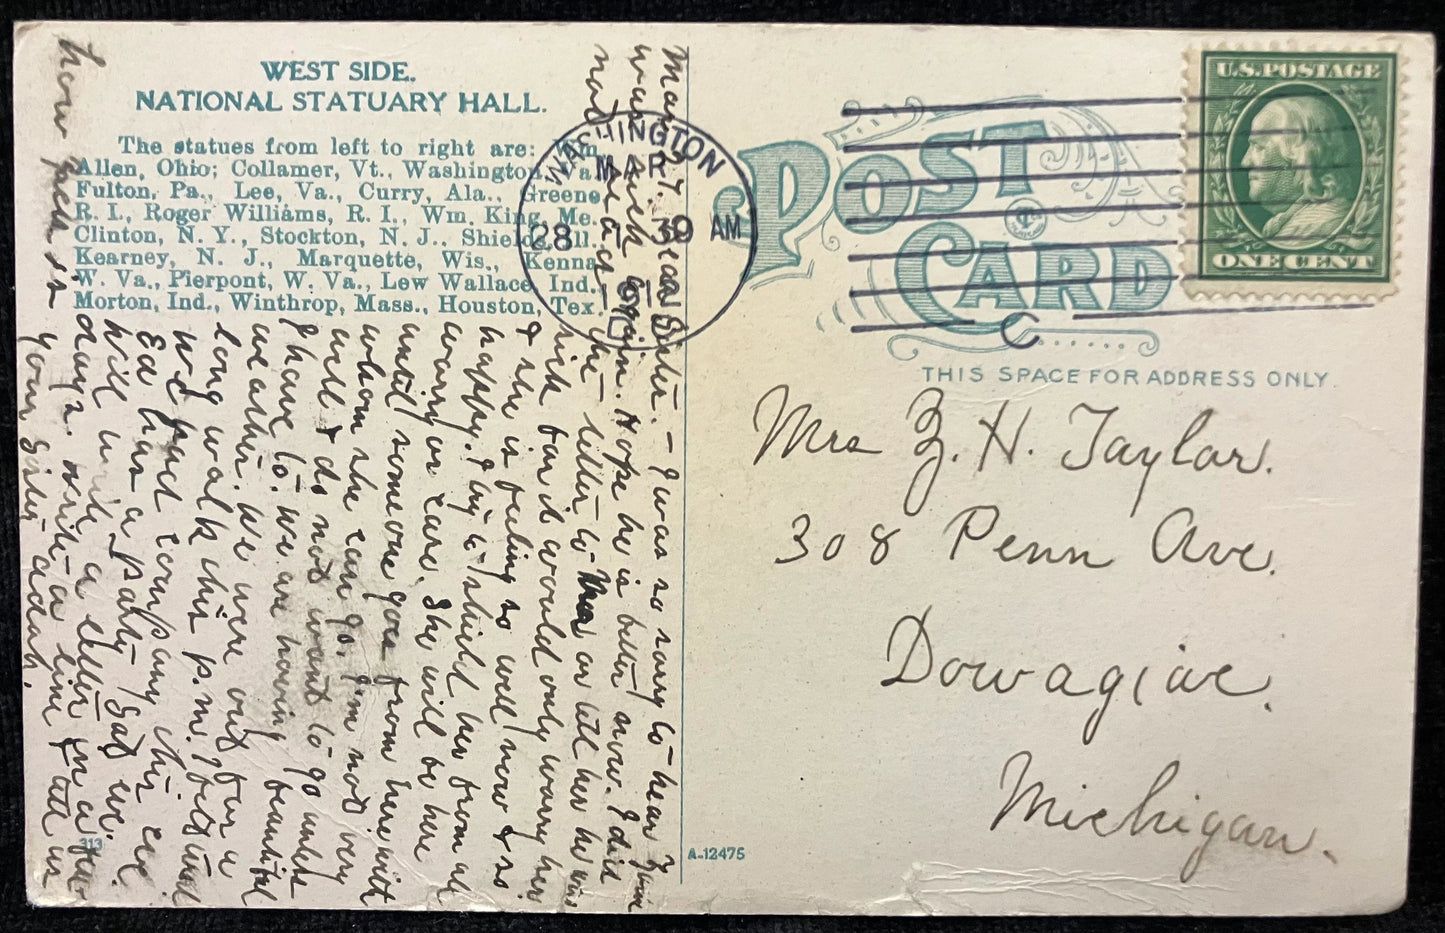 WEST SIDE.
NATIONAL STATUARY HALL.
The statues from left to right are: Wm.
Allen, Ohio; Collamer, Vt., Washington, Va.
Fulton, Pa., Lee, Va., Curry, Ala., Greene,
R. I., Roger Williams, R. I., Wm. King, Me.
Clinton, N. Y., Stockton, N. J., Shields, Ill.,
Kearney, N. J., Marquette, Wis., Kenna,
W. Va., Pierpont, W. Va., Lew Wallace, Ind.,
Morton, Ind., Winthrop, Mass., Houston, Tex.
Mar 27. Dear Sister. – I was so sorry to hear Zenie
was sick again. Hope he is better now. I did
not read the letter to Ma or tell her he was
sick for it would only worry her
& she is feeling so well now & so
happy. I try to shield her from all
worry or care. She will be here
until someone goes from here with
whom she can go. I'm not very
well & do not want to go unless
I have to. We are having beautiful
weather. We were out for a
long walk this p.m.
we had company this eve.
Ed has a party Sat eve.
Will write a letter in a few
days. Write a line & tell us
how Zack is
your Sister Adah.
313
WASHINGTON
MAR
28 7 30 AM
D C
POST
CARD
THIS SPACE FOR ADDRESS ONLY.
U.S. POSTAGE
ONE CENT
Mrs Z. H. Taylor.
308 Penn Ave.
Dowagiac.
Michigan.
A-12475